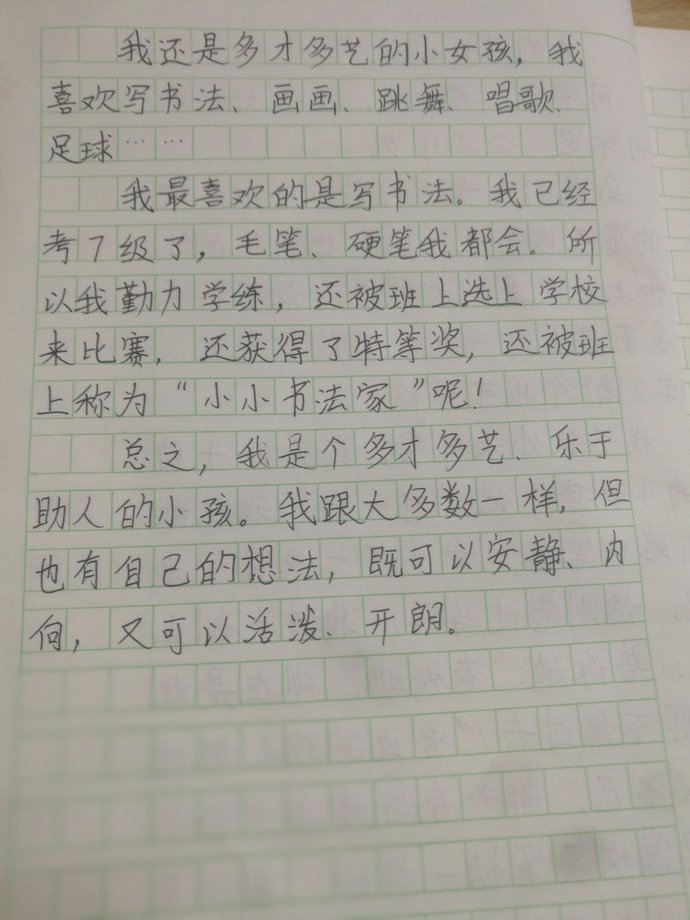 我还是多才多艺的小女孩，我
喜欢写书法、画画、跳舞、唱歌、
足球……
我最喜欢的是写书法。我已经
考7级了，毛笔、硬笔我都会。所
以我勤力学练，还被班上选上学校
来比赛，还获得了特等奖，还被班
上称为“小小书法家”呢！
总之，我是个多才多艺、乐于
助人的小孩。我跟大多数一样，但
也有自己的想法，既可以安静、内
向，又可以活泼、开朗。